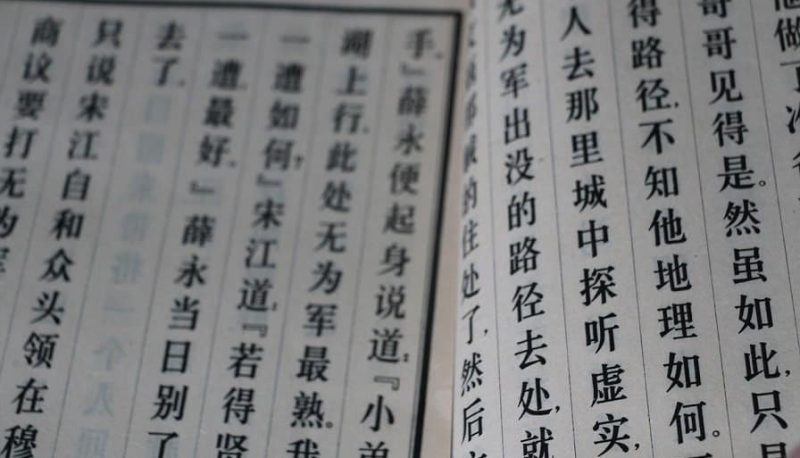 做了
哥哥见得是。然虽如此,只
得路径,不知他地理如何。
人去那里城中探听虚实,
无为军出没的路径去处,就
的住处了,然后
手。』薛永便起身说道:『小弟
湖上行,此处无为军最熟。我
一遭如何?』宋江道:『若得贤
一遭,最好。』薛永当日别了
去了。
只说宋江自和众头领在穆
商议要打无为军